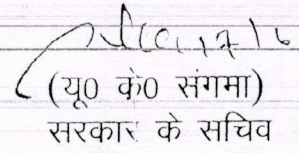 (यू0 के0 संगमा)
सरकार के सचिव